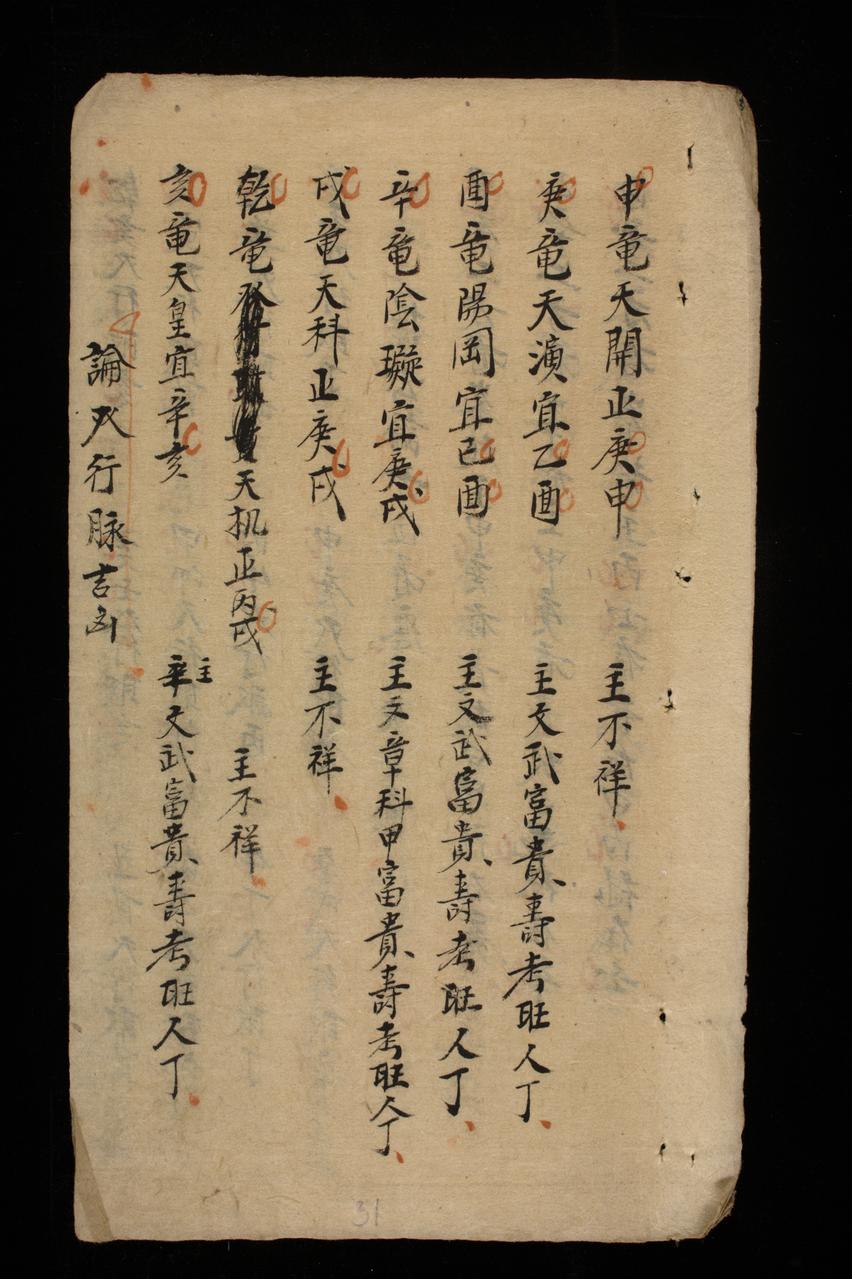 申竜天開正庚申　主不祥
庚竜天潢宜乙酉　主文武富貴壽考旺人丁
酉竜陽岡宜已酉　主文武富貴壽考旺人丁
辛竜陰璇宜庚戌　主文章科甲富貴壽考旺人丁
戌竜天科正庚戌　主不祥
乾竜天机正丙戌　主不祥
亥竜天皇宜辛亥　主文武富貴壽考旺人丁
論穴行脉吉凶
31